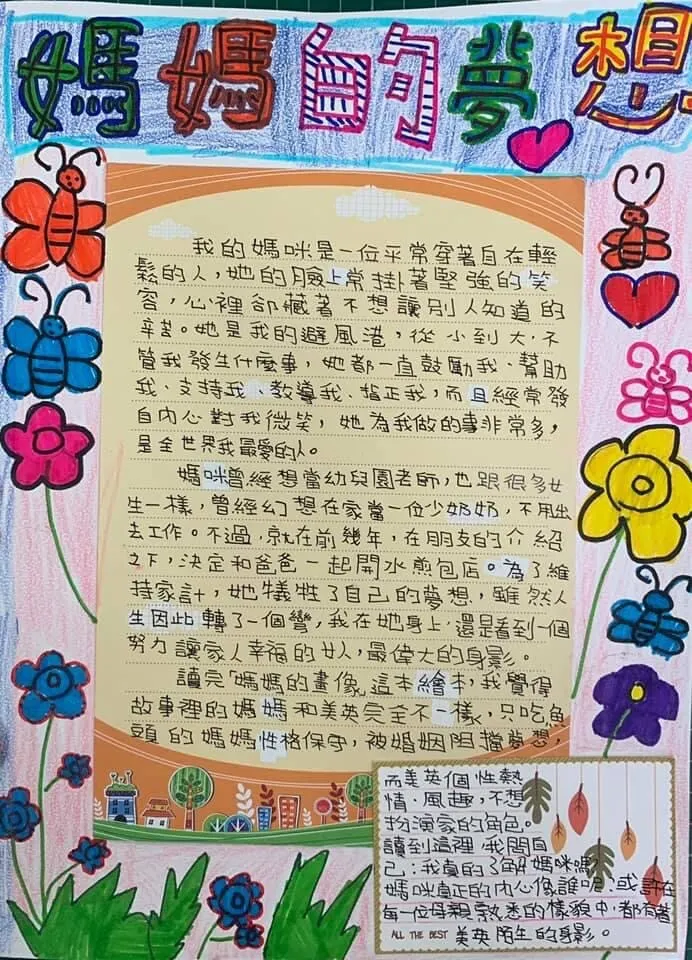 媽媽的夢想
我的媽咪是一位平常穿著自在輕
鬆的人，她的臉上常掛著堅強的笑
容，心裡卻藏著不想讓別人知道的
辛苦。她是我的避風港，從小到大，不
管我發生什麼事，她都一直鼓勵我、幫助
我、支持我、教導我、指正我，而且經常發
自內心對我微笑，她為我做的事非常多，
是全世界我最愛的人。
媽咪曾經想當幼兒園老師，也跟很多女
生一樣，曾經幻想在家當一位少奶奶，不用出
去工作。不過，就在前幾年，在朋友的介紹
之下，決定和爸爸一起開水煎包店。為了維
持家計，她犧牲了自己的夢想，雖然人
生因此轉了一個彎，我在她身上，還是看到一個
努力讓家人幸福的女人，最偉大的身影。
讀完「媽媽的畫像」這本繪本，我覺得
故事裡的媽媽和美英完全不一樣，只吃魚
頭的媽媽性格保守，被婚姻阻擋夢想，
而美英個性熱
情、風趣，不想
扮演家的角色。
讀到這裡，我問自
己：我真的了解媽咪嗎？
媽咪真正的內心像誰呢？或許在
每一位母親熟悉的樣貌中，都有著
ALL THE BEST 美英陌生的身影。